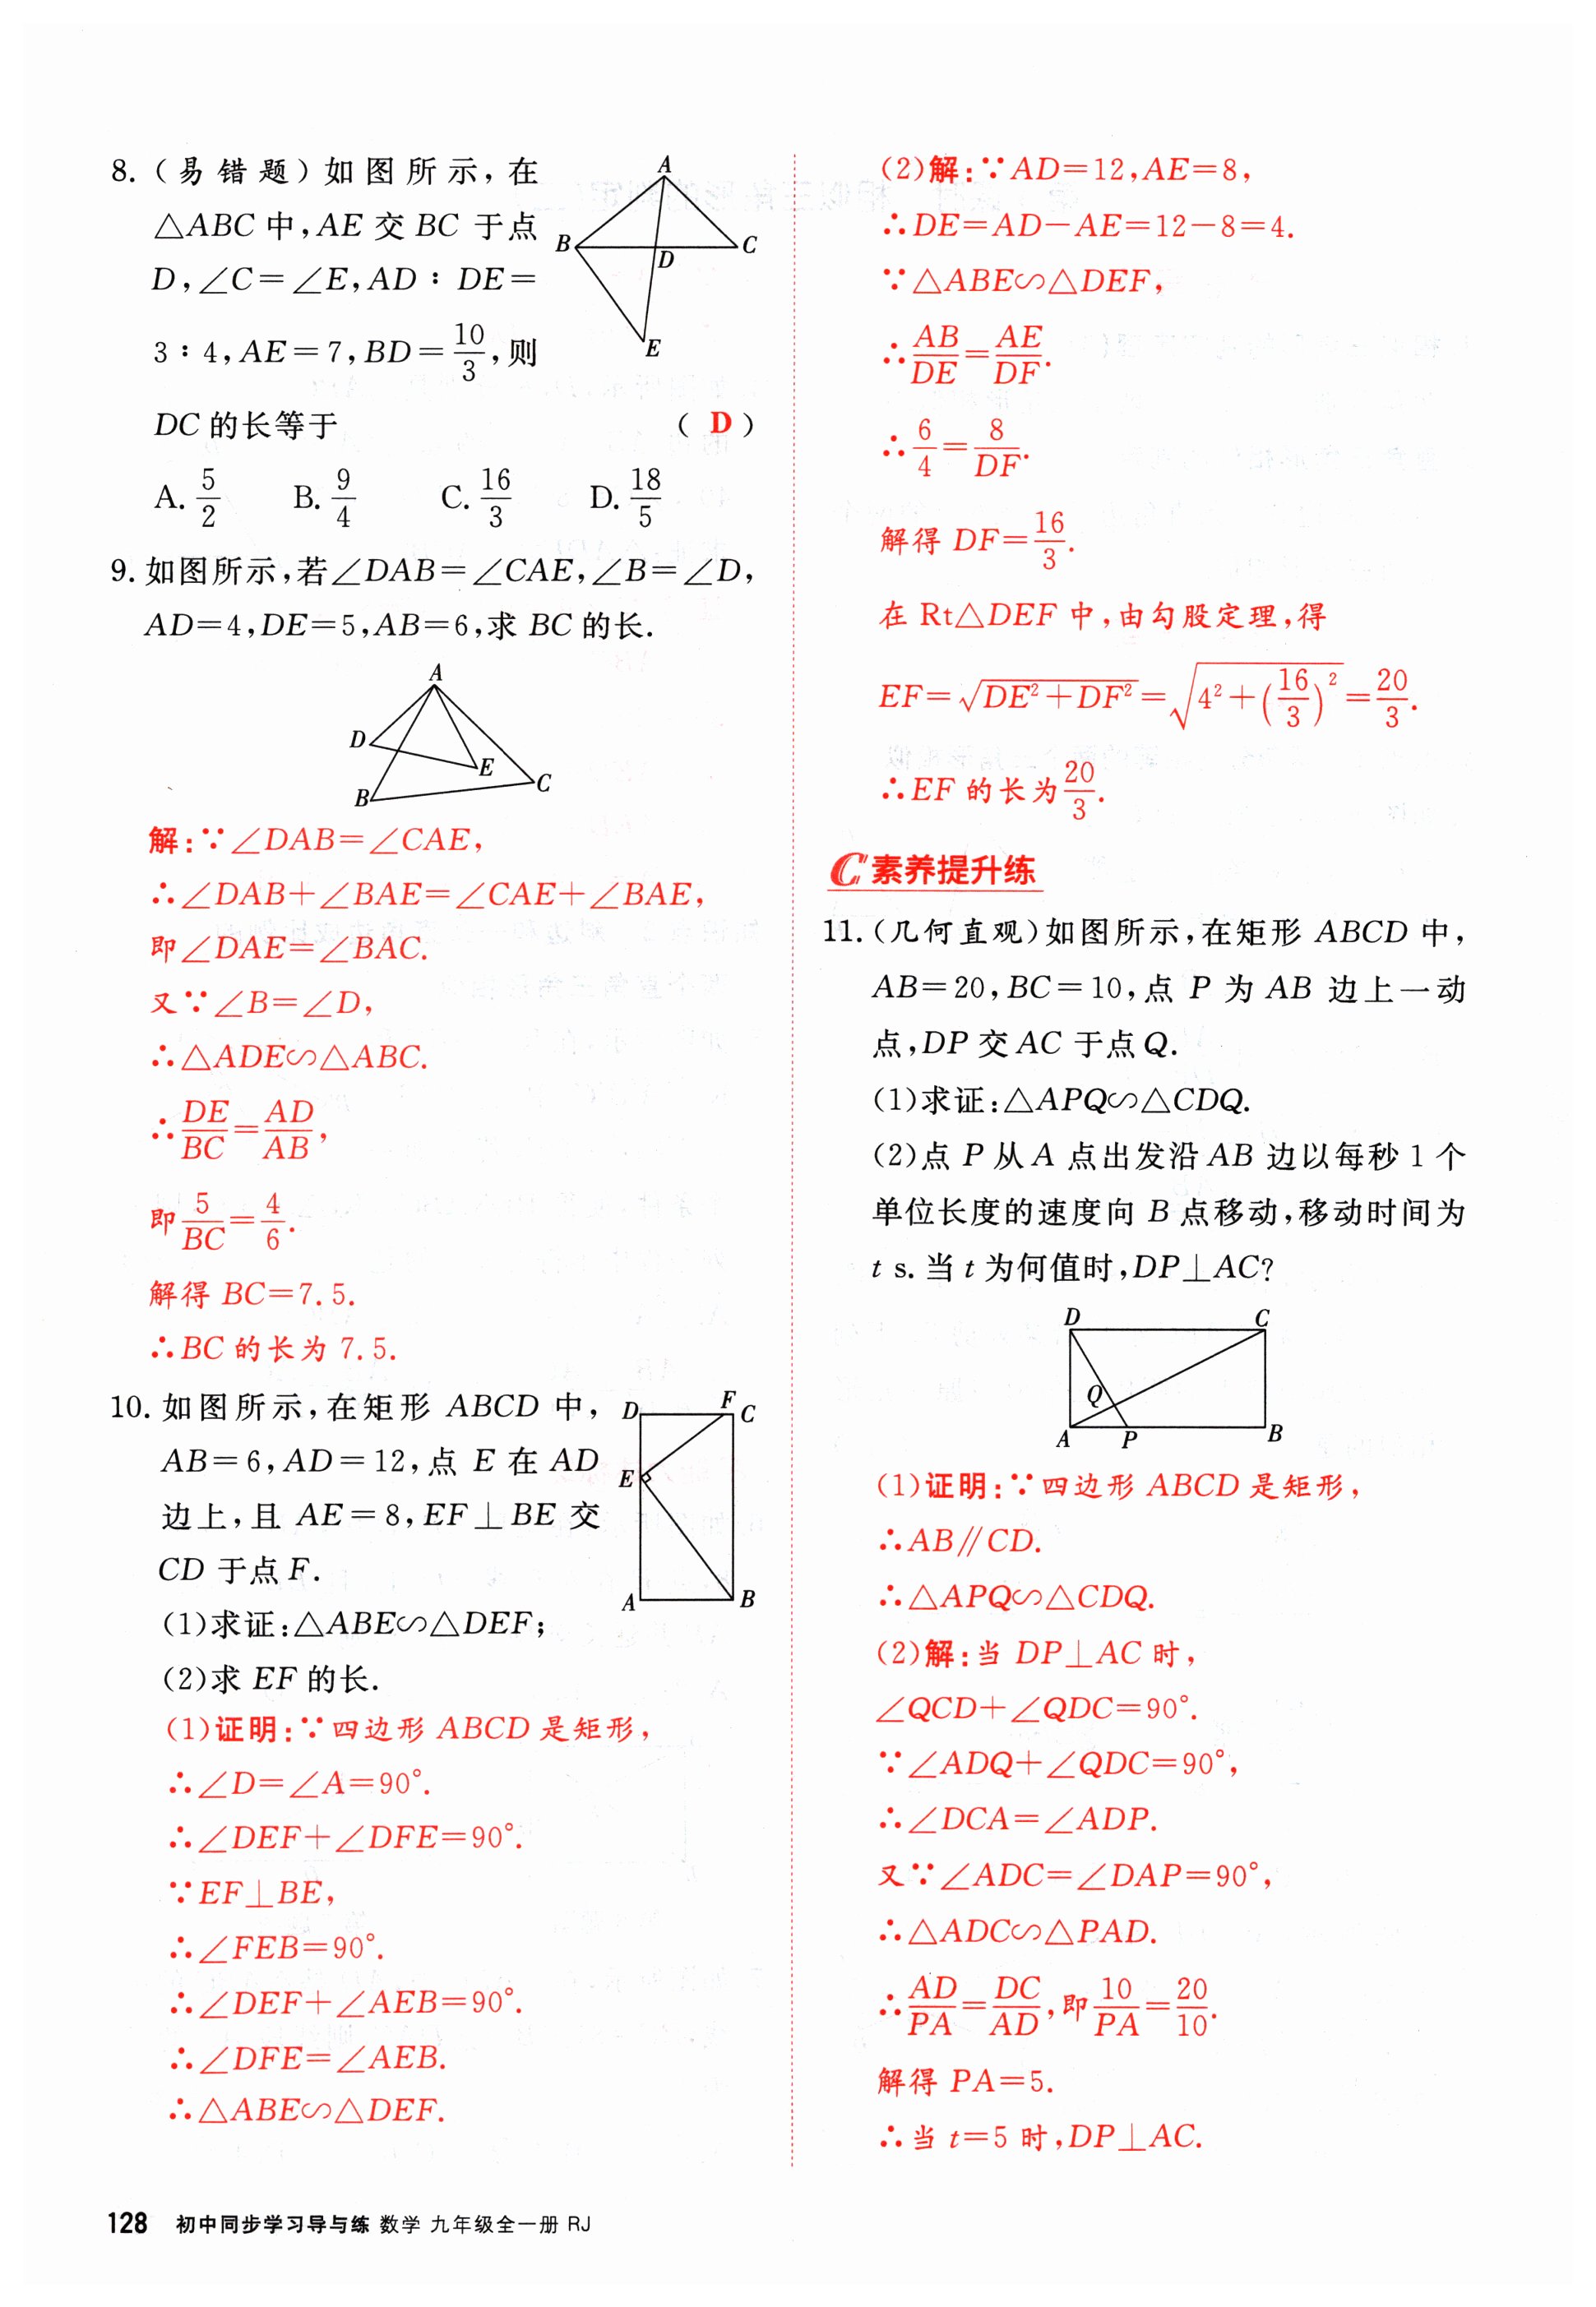 8.(易错题)如图所示,在
△ABC 中,AE 交 BC 于点
D,∠C=∠E,AD∶DE=
3∶4,AE=7,BD=10/3,则
DC 的长等于 ( D )
A. 5/2 B. 9/4 C. 16/3 D. 18/5
A
B
D
C
E
9.如图所示,若∠DAB=∠CAE,∠B=∠D,
AD=4,DE=5,AB=6,求 BC 的长.
A
D
E
C
B
解:∵∠DAB=∠CAE,
∴∠DAB+∠BAE=∠CAE+∠BAE,
即∠DAE=∠BAC.
又∵∠B=∠D,
∴△ADE∽△ABC.
∴DE/BC=AD/AB,
即5/BC=4/6.
解得 BC=7.5.
∴BC 的长为 7.5.
10.如图所示,在矩形 ABCD 中,
AB=6,AD=12,点 E 在 AD
边上,且 AE=8,EF⊥BE 交
CD 于点 F.
(1)求证:△ABE∽△DEF;
(2)求 EF 的长.
D
F
C
E
A
B
(1)证明:∵四边形 ABCD 是矩形,
∴∠D=∠A=90°.
∴∠DEF+∠DFE=90°.
∵EF⊥BE,
∴∠FEB=90°.
∴∠DEF+∠AEB=90°.
∴∠DFE=∠AEB.
∴△ABE∽△DEF.
(2)解:∵AD=12,AE=8,
∴DE=AD−AE=12−8=4.
∵△ABE∽△DEF,
∴AB/DE=AE/DF.
∴6/4=8/DF.
解得 DF=16/3.
在 Rt△DEF 中,由勾股定理,得
EF=√(DE²+DF²)=√(4²+(16/3)²)=20/3.
∴EF 的长为20/3.
C 素养提升练
11.(几何直观)如图所示,在矩形 ABCD 中,
AB=20,BC=10,点 P 为 AB 边上一动
点,DP 交 AC 于点 Q.
(1)求证:△APQ∽△CDQ.
(2)点 P 从 A 点出发沿 AB 边以每秒 1 个
单位长度的速度向 B 点移动,移动时间为
t s.当 t 为何值时,DP⊥AC?
D
C
Q
A
P
B
(1)证明:∵四边形 ABCD 是矩形,
∴AB∥CD.
∴△APQ∽△CDQ.
(2)解:当 DP⊥AC 时,
∠QCD+∠QDC=90°.
∵∠ADQ+∠QDC=90°,
∴∠DCA=∠ADP.
又∵∠ADC=∠DAP=90°,
∴△ADC∽△PAD.
∴AD/PA=DC/AD,即10/PA=20/10.
解得 PA=5.
∴当 t=5 时,DP⊥AC.
128 初中同步学习导与练 数学 九年级全一册 RJ